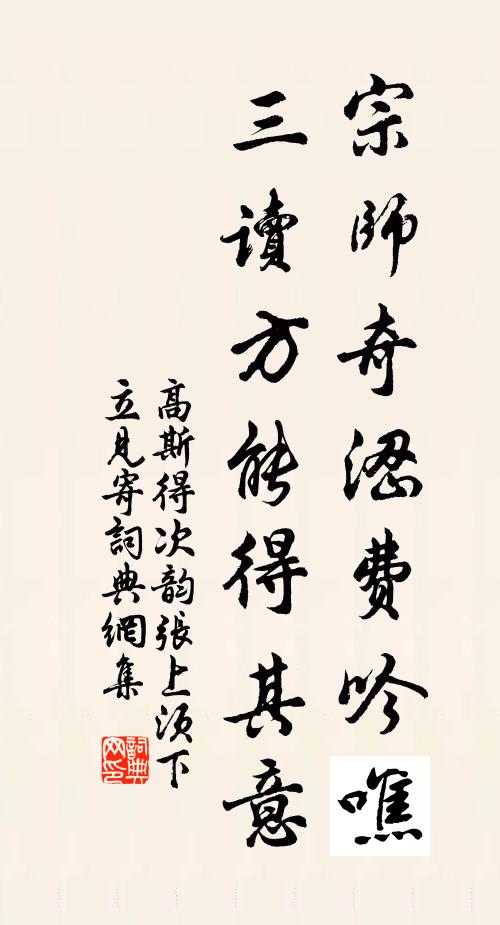 宗師奇澀費吟噍
三讀方能得其意
高斯得次韵張上須下
立見寄詞典網集
詞典網印